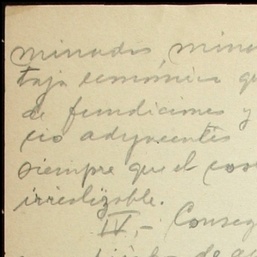 minados mina
taja económica q
de fundiciones y
cio adyacentes
siempre que el cos
irrealizable.
IV.- Conseg